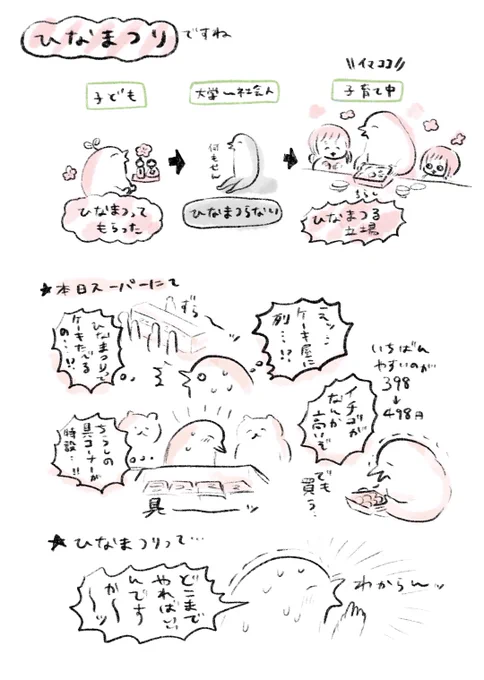 ひなまつり
ですね
子ども
大学〜社会人
イマココ
子育て中
何もせん
ひなまつって
もらった
ひなまつらない
ちらし
ひなまつる
立場
★本日スーパーにて
ひなまつりって
ケーキたべる
の…!?
ずら
えッ…
ケーキ屋に
列…!?
いちばん
やすいのが
398
↓
498円
イチゴが
なんか
高いぞ
でも
買う…
ちらしの
具コーナーが
特設…!!
具
★ひなまつりって…
どこまで
やればいい
んです
か〜〜ッ
わからんッ